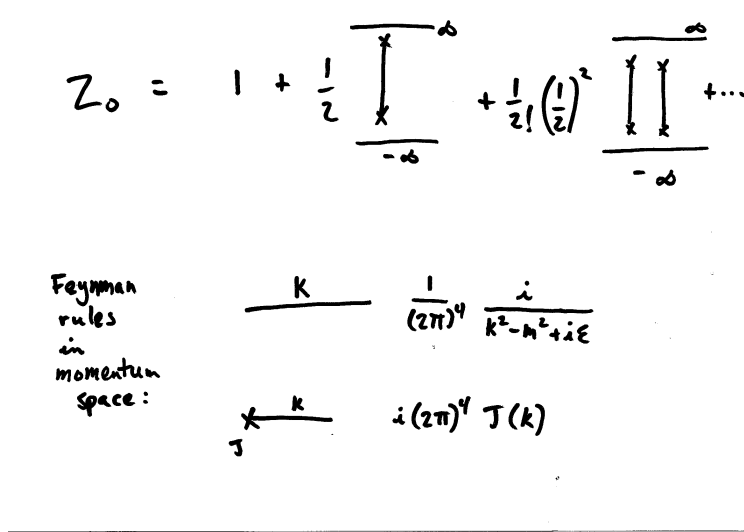 Z₀ = 1 + 1/2 ∞ -∞ + 1/2! (1/2)² ∞ -∞ + ...
Feynman
rules
in
momentum
space:
K 1/(2π)⁴ i/(k²-m²+iε)
k
J i(2π)⁴ J(k)